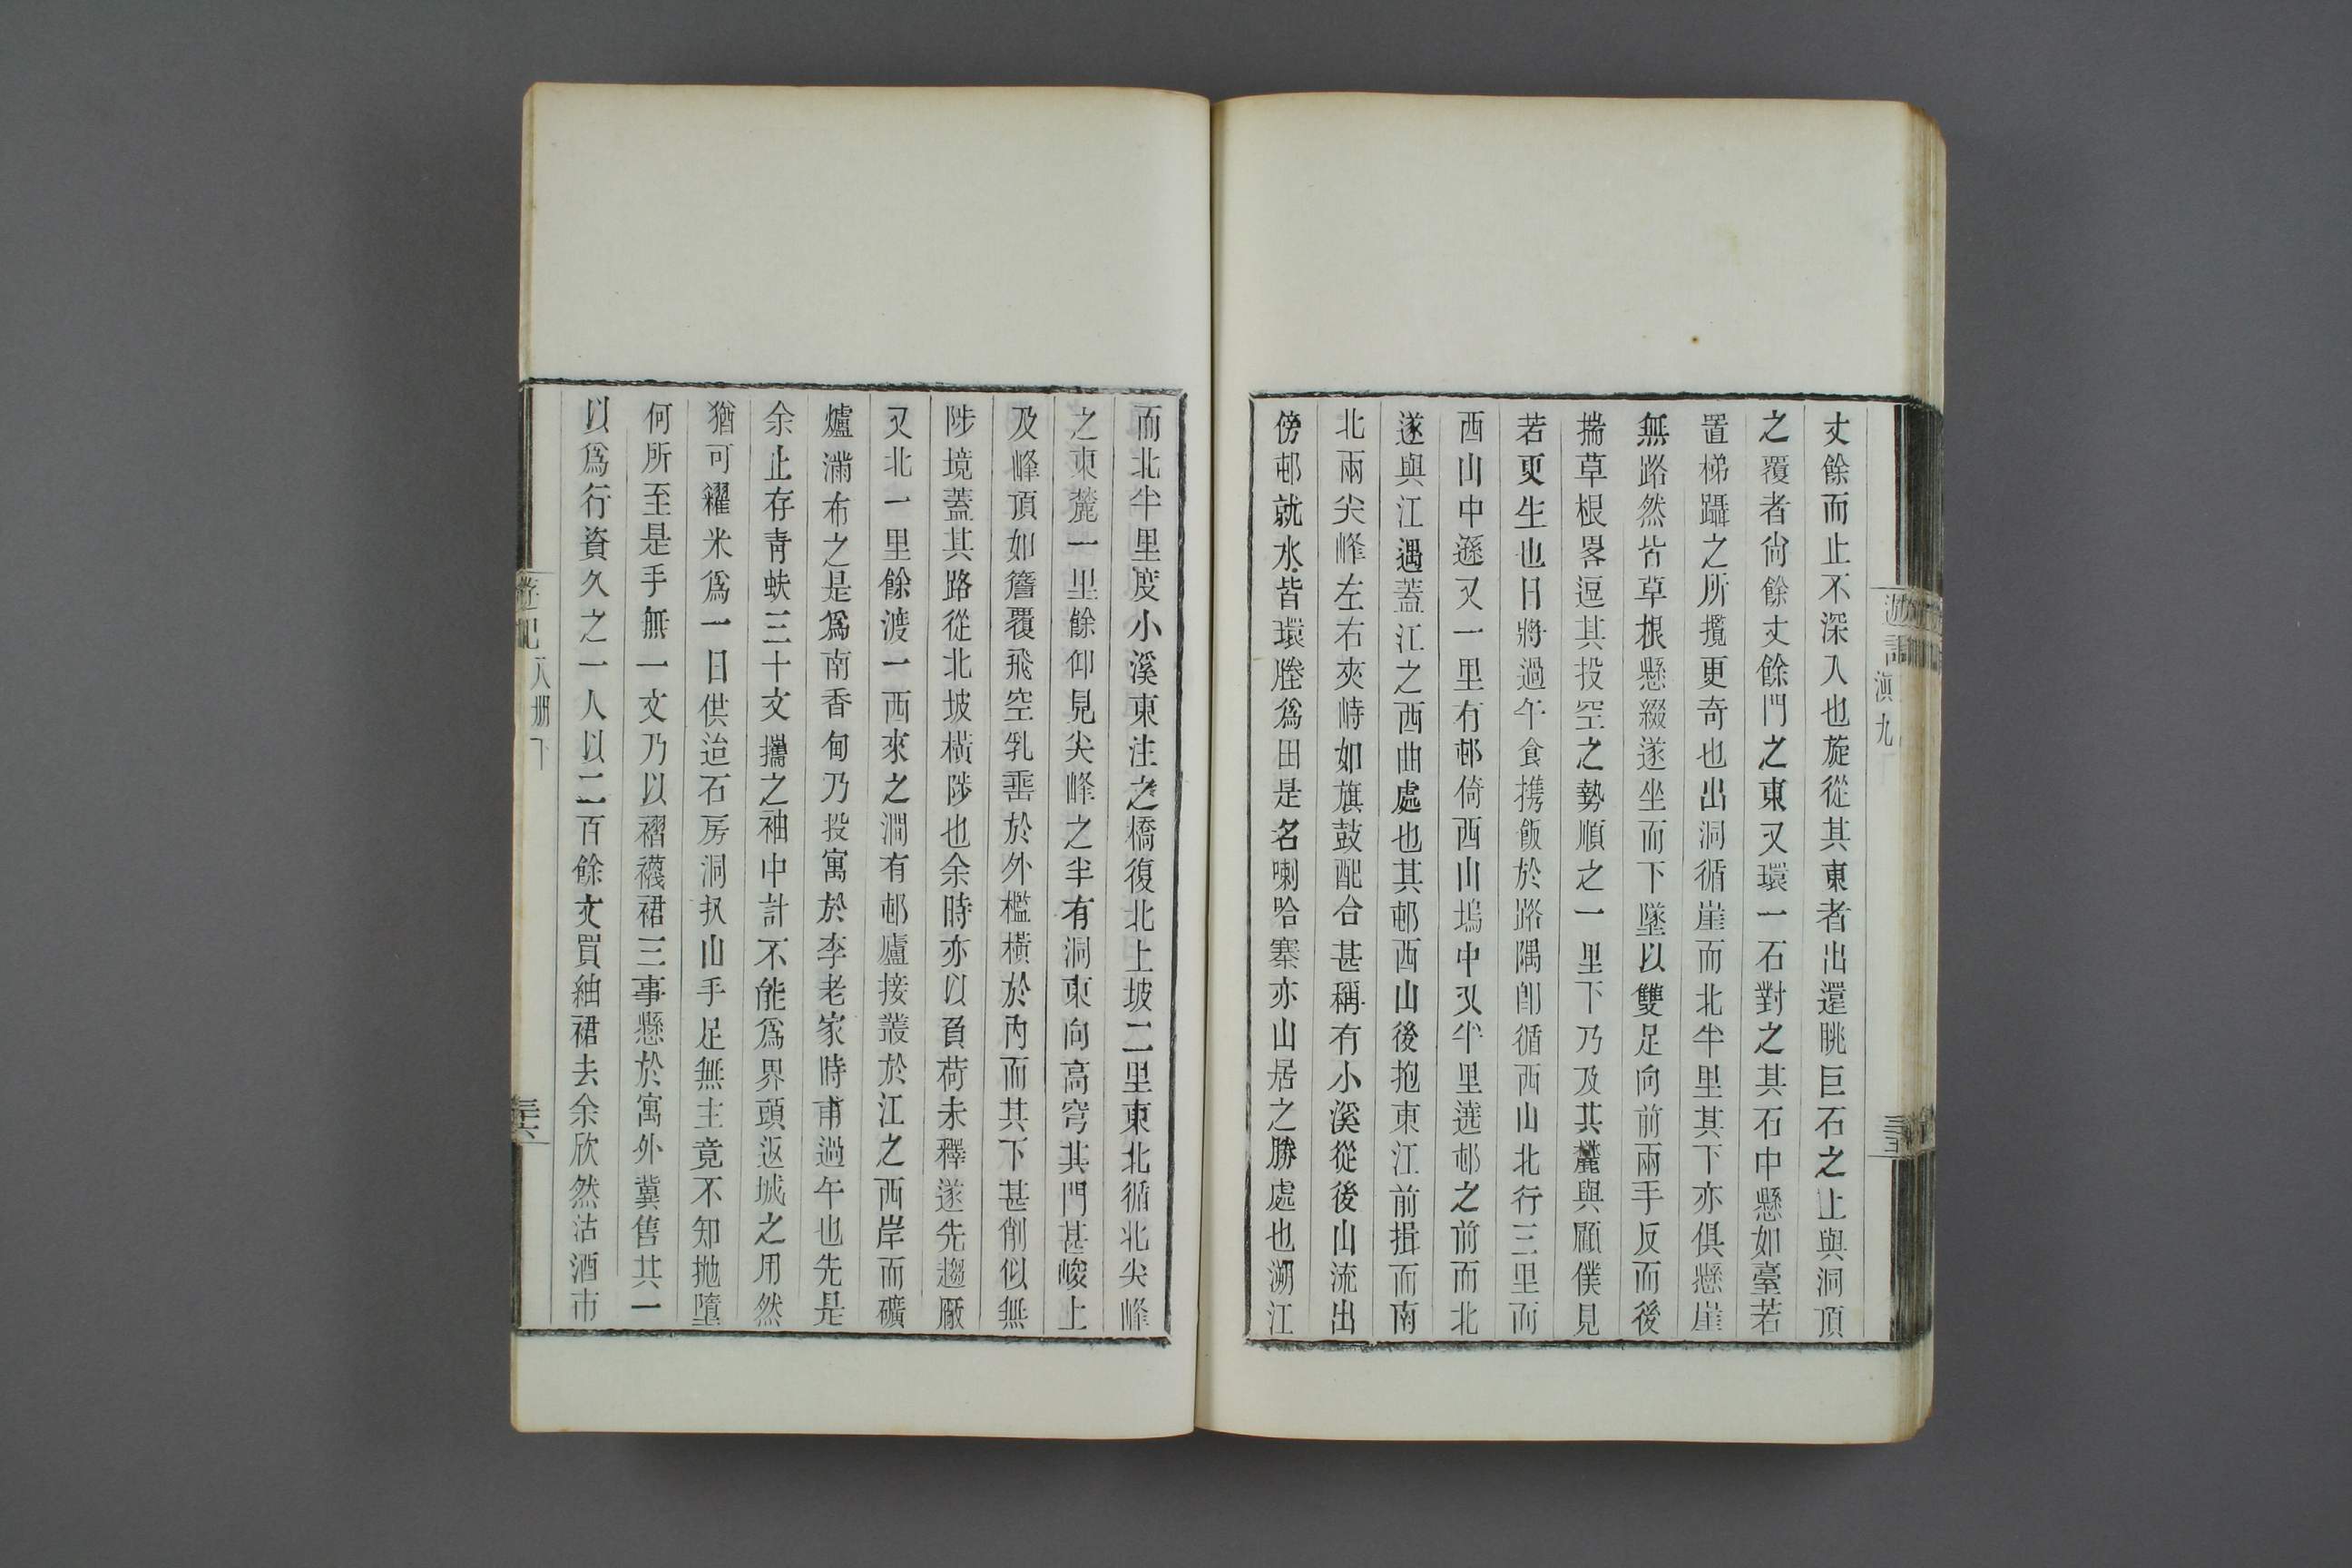 丈餘而止不深入也旋從其東者出還眺巨石之上與洞頂
之覆者尙餘丈餘門之東又環一石對之其石中懸如臺若
置梯躡之所攬更奇也出洞循崖而北半里其下亦俱懸崖
無路然皆草根懸綴遂坐而下墜以雙足向前兩手反而後
揣草根畧逗其投空之勢順之一里下乃及其麓與顧僕見
若更生也日將過午食携飯於路隅卽循西山北行三里而
西山中遜又一里有邨倚西山塢中又半里遶邨之前而北
遂與江遇蓋江之西曲處也其邨西山後抱東江前揖而南
北兩尖峰左右夾峙如旗鼓配合甚稱有小溪從後山流出
傍邨就水皆環塍爲田是名喇哈寨亦山居之勝處也溯江
遊記 滇九
而北半里度小溪東注之橋復北上坡二里東北循北尖峰
之東麓一里餘仰見尖峰之半有洞東向高穹其門甚峻上
及峰頂如簷覆飛空乳垂於外檻橫於內而其下甚削似無
陟境蓋其路從北坡橫陟也余時亦以負荷未釋遂先趨厰
又北一里餘渡一西來之澗有邨廬接叢於江之西岸而礦
爐滿布之是爲南香甸乃投寓於李老家時甫過午也先是
余止存靑蚨三十文攜之袖中計不能爲界頭返城之用然
猶可糴米爲一日供迨石房洞扒山手足無主竟不知拋墮
何所至是手無一文乃以褶襪裙三事懸於寓外冀售其一
以爲行資久之一人以二百餘文買紬裙去余欣然沽酒市
遊記 八册下 三六